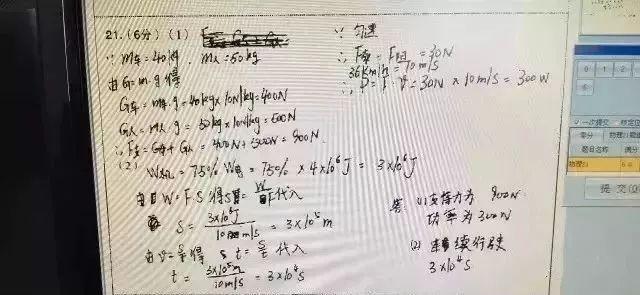 21.(6分) (1)
∵ m车=40kg, m人=50kg
由G=m·g得
G车=m车·g=40kg×10N/kg=400N
G人=m人·g=50kg×10N/kg=500N
∴F支=G车+G人=400N+500N=900N
(2)
W机=75% W电=75%×4×10⁶J=3×10⁶J
由W=F·S得S=W/F代入
S=3×10⁶J/10m/s=3×10⁵m
t=3×10⁵m/10m/s=3×10⁴s
∵ 匀速
∴F牵=F阻=30N
36km/h=10m/s
∴P=F·v=30N×10m/s=300W
答: (1)支持力为 900N
功率为300N
(2) 续行驶
3×10⁴s
0 1 2
一次提交
零分
题目名称 满分
物理21
提交